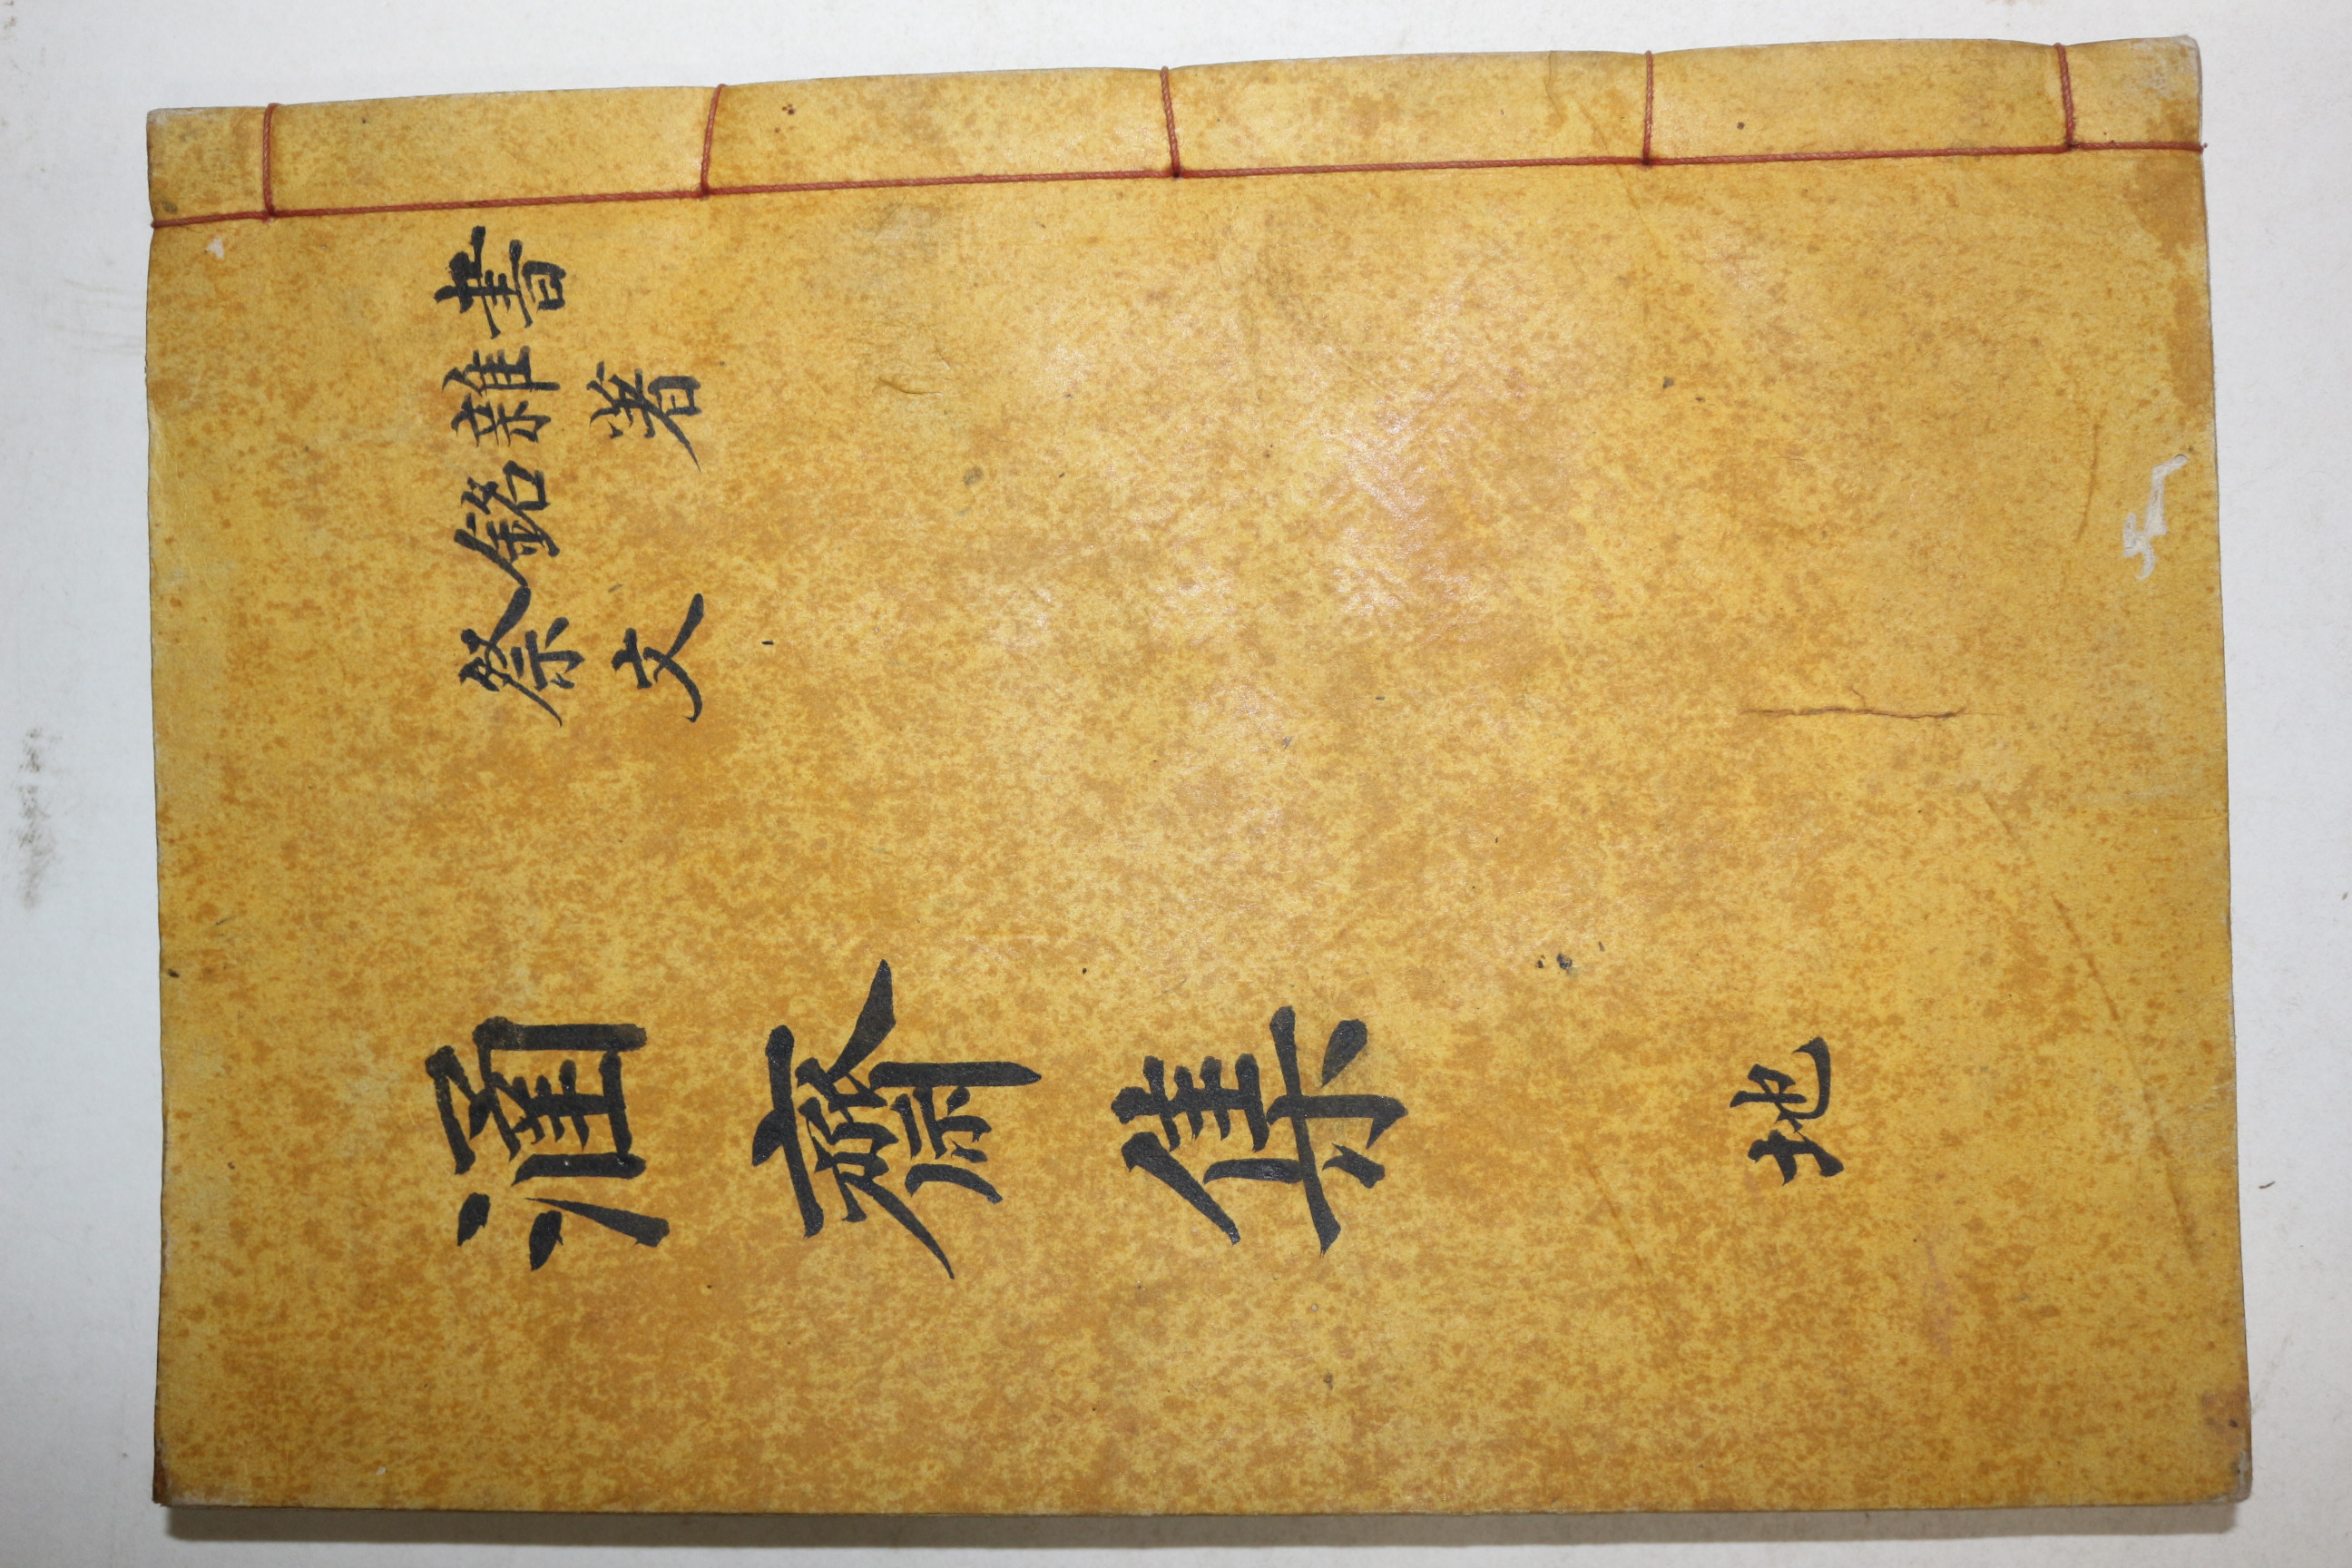 書
雜著
銘
祭文
涵齋集 地